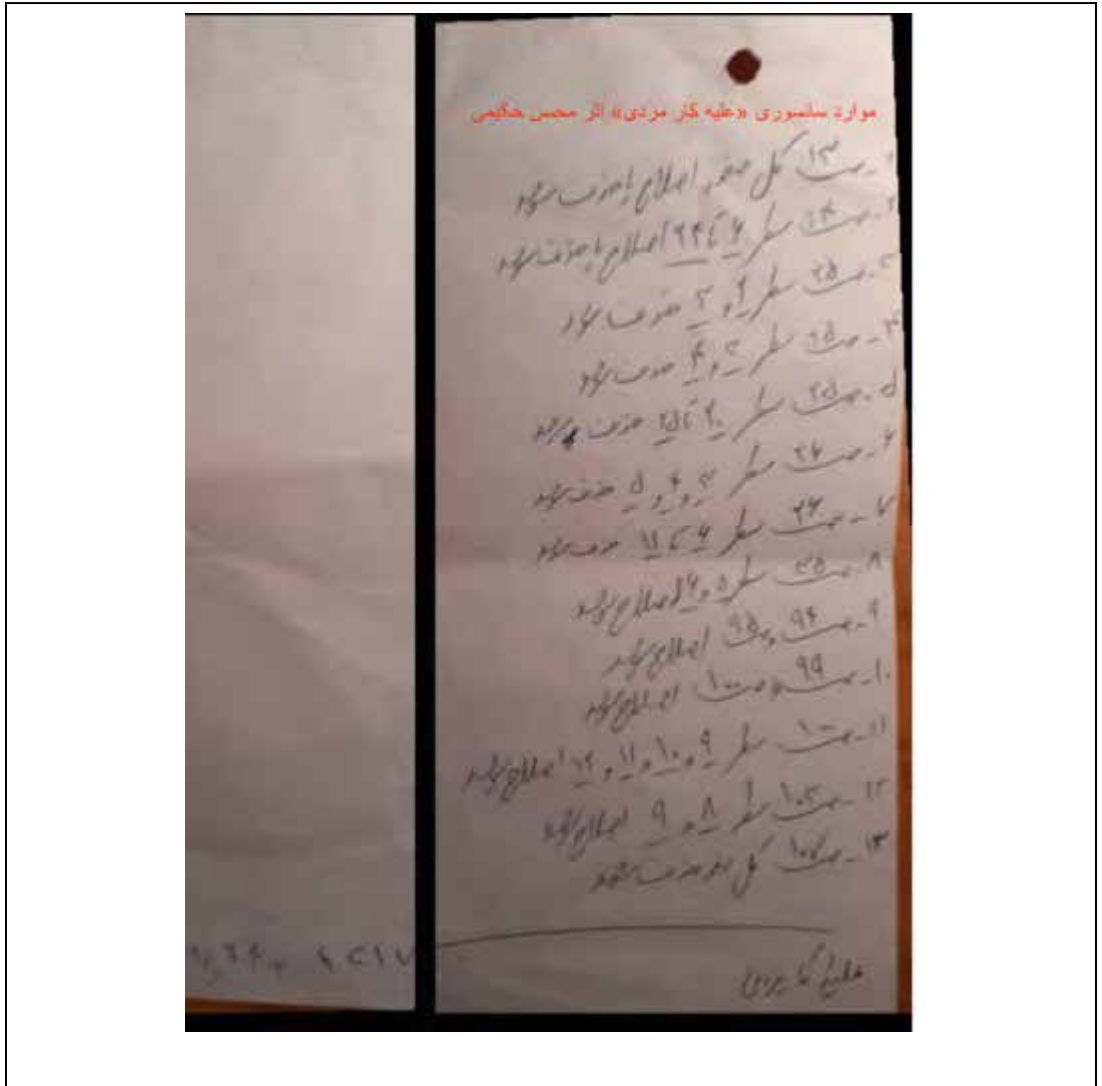 موارد سانسوری «علیه کار مزدی» اثر محسن حکیمی
۱- ص ۱۳ کل صفحه اصلاح یا حذف شود
۲- ص ۱۴ سطر ۶ تا ۲۴ اصلاح یا حذف شود
۳- ص ۲۵ سطر ۲ و ۳ حذف شود
۴- ص ۲۵ سطر ۳ و ۴ حذف شود
۵- ص ۲۵ سطر ۲۰ تا ۲۵ حذف شود
۶- ص ۲۶ سطر ۳ و ۴ و ۵ حذف شود
۷- ص ۲۶ سطر ۶ تا ۱۱ حذف شود
۸- ص ۳۵ سطر ۵ و ۶ اصلاح شود
۹- ص ۹۴ و ص ۹۵ اصلاح شود
۱۰- ص ۹۹ و ص ۱۰۰ اصلاح شود
۱۱- ص ۱۰۰ سطر ۹ و ۱۰ و ۱۱ و ۱۲ اصلاح شود
۱۲- ص ۱۰۳ سطر ۸ و ۹ اصلاح شود
۱۳- ص ۱۰۷ کل صفحه حذف شود
علیه کار مزدی